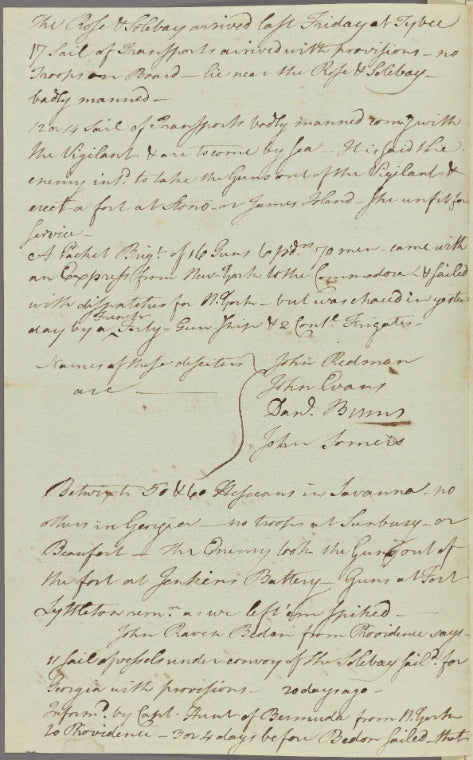 The Rose & Solebay arrived last Friday at Tybee
17 Sail of Transports arrived with provisions — no
Troops on Board — lie near the Rose & Solebay —
badly manned —
12 or 14 Sail of Transports badly manned comg. with
the Vigilant & are to come by Sea — It is said the
enemy intd. to take the Guns out of the Vigilant &
erect a fort at Stono — or James Island — She unfit for
Service —
A Packet Brigt. of 16 Guns 6 pdrs. 70 men — came with
an Express from New-York to the Commadore — & sailed
with dispatches for N. York — but was chased in yester
day by a French Fifty-Gun Ship & 2 Contl. Frigates —
Names of these deserters
are —
John Redman
John Evans
Danl. Binns
John Somers
Betwixt 50 & 60 Hessians in Savanna — no
others in Georgia — no troops at Sunbury — or
Beaufort — the Enemy took the Guns out of
the fort at Jenkins Battery — Guns at Fort
Lyttleton remn. as we left 'em spiked —
John Raven Bedon from Providence says —
11 sail of vessels under convoy of the Solebay saild. for
Georgia with provisions — 20 days ago —
Informd. by Capt. Hunt of Bermuda from N. York
to Providence — 3 or 4 days before Bedon sailed — that